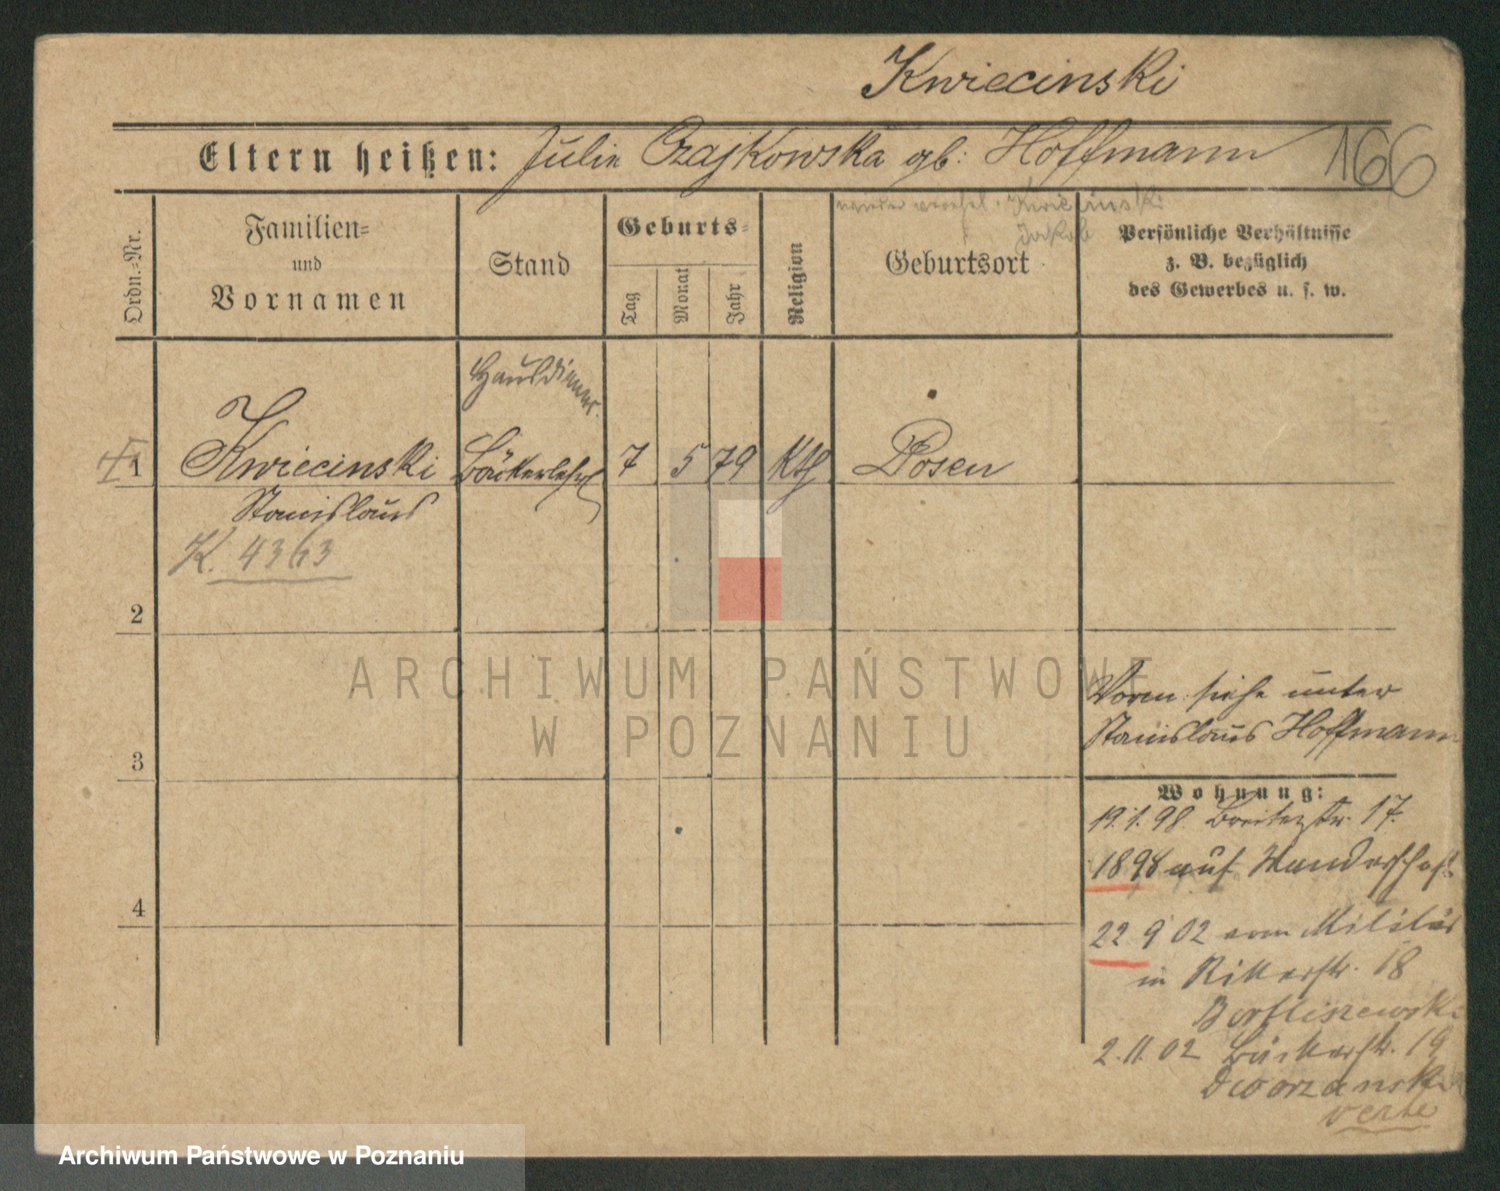 Kwiecinski
Eltern heißen: Julie Czajkowska gb: Hoffmann 166
Kwiecinski
Jakob
Ordn.-Nr.
Familien-
und
Vornamen
Stand
Geburts-
Tag
Monat
Jahr
Religion
Geburtsort
Persönliche Verhältnisse
z. B. bezüglich
des Gewerbes u. s. w.
Hausdiener.
1 Kwiecinski Bäckerlehrl 7 5 79 Kth Posen
Stanislaus
K. 4363
2
3
4
Vorm. siehe unter
Stanislaus Hoffmann
Wohnung:
19.1.98. Breitestr. 17.
1898 auf Wanderschaft
22 9 02 vom Militär
in Ritterstr. 18
2.11.02 Bäckerstr. 19
Dworzanski
verte
ARCHIWUM PAŃSTWOWE
W POZNANIU
Archiwum Państwowe w Poznaniu